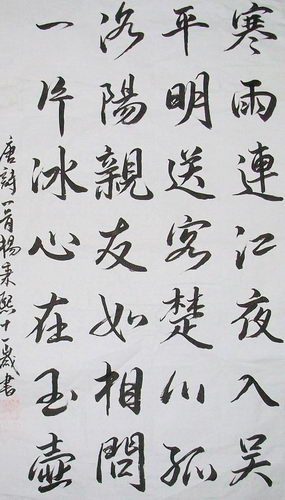 寒雨連江夜入吳
平明送客楚山孤
洛陽親友如相問
一片冰心在玉壺
唐詩一首楊熙十一歲書